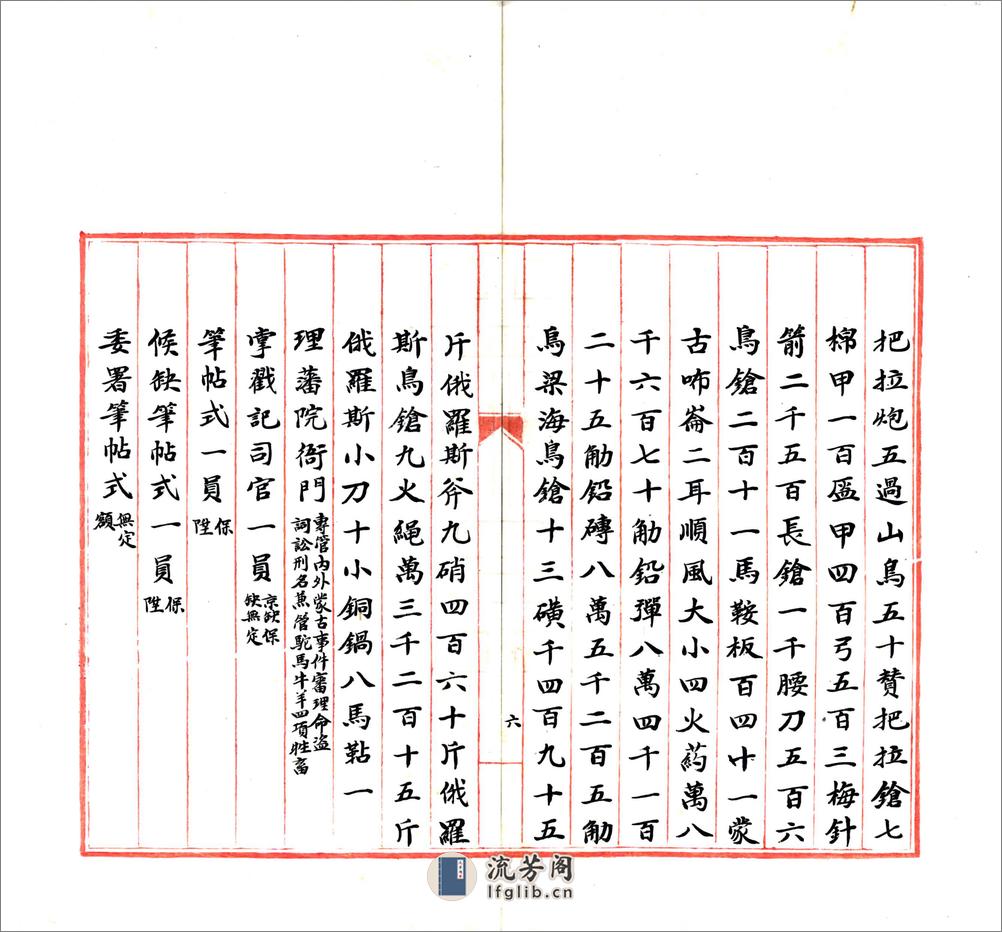 把拉炮五過山鳥五十贊把拉鎗七
棉甲一百盔甲四百弓五百三梅針
箭二千五百長鎗一千腰刀五百六
鳥鎗二百十一馬鞍板百四十一蒙
古咘崙二耳順風大小四火葯萬八
千六百七十觔鉛彈八萬四千一百
二十五觔鉛磚八萬五千二百五觔
烏梁海鳥鎗十三磺千四百九十五
六
斤俄羅斯斧九硝四百六十斤俄羅
斯鳥鎗九火繩萬三千二百十五斤
俄羅斯小刀十小銅鍋八馬㸃一
理藩院衙門專管內外蒙古事件審理命盜
詞訟刑名兼管駝馬牛羊四項牲畜
掌戳記司官一員京缺保
缺無定
筆帖式一員保
陞
候缺筆帖式一員保
陞
委署筆帖式無定
額
流芳阁
lfglib.cn